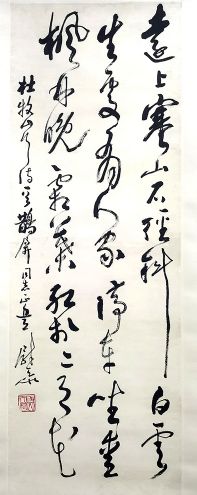 遠上寒山石徑斜白雲
生處有人家停車坐愛
楓林晚霜葉紅於二月花
杜牧山行詩 鵲屏同志